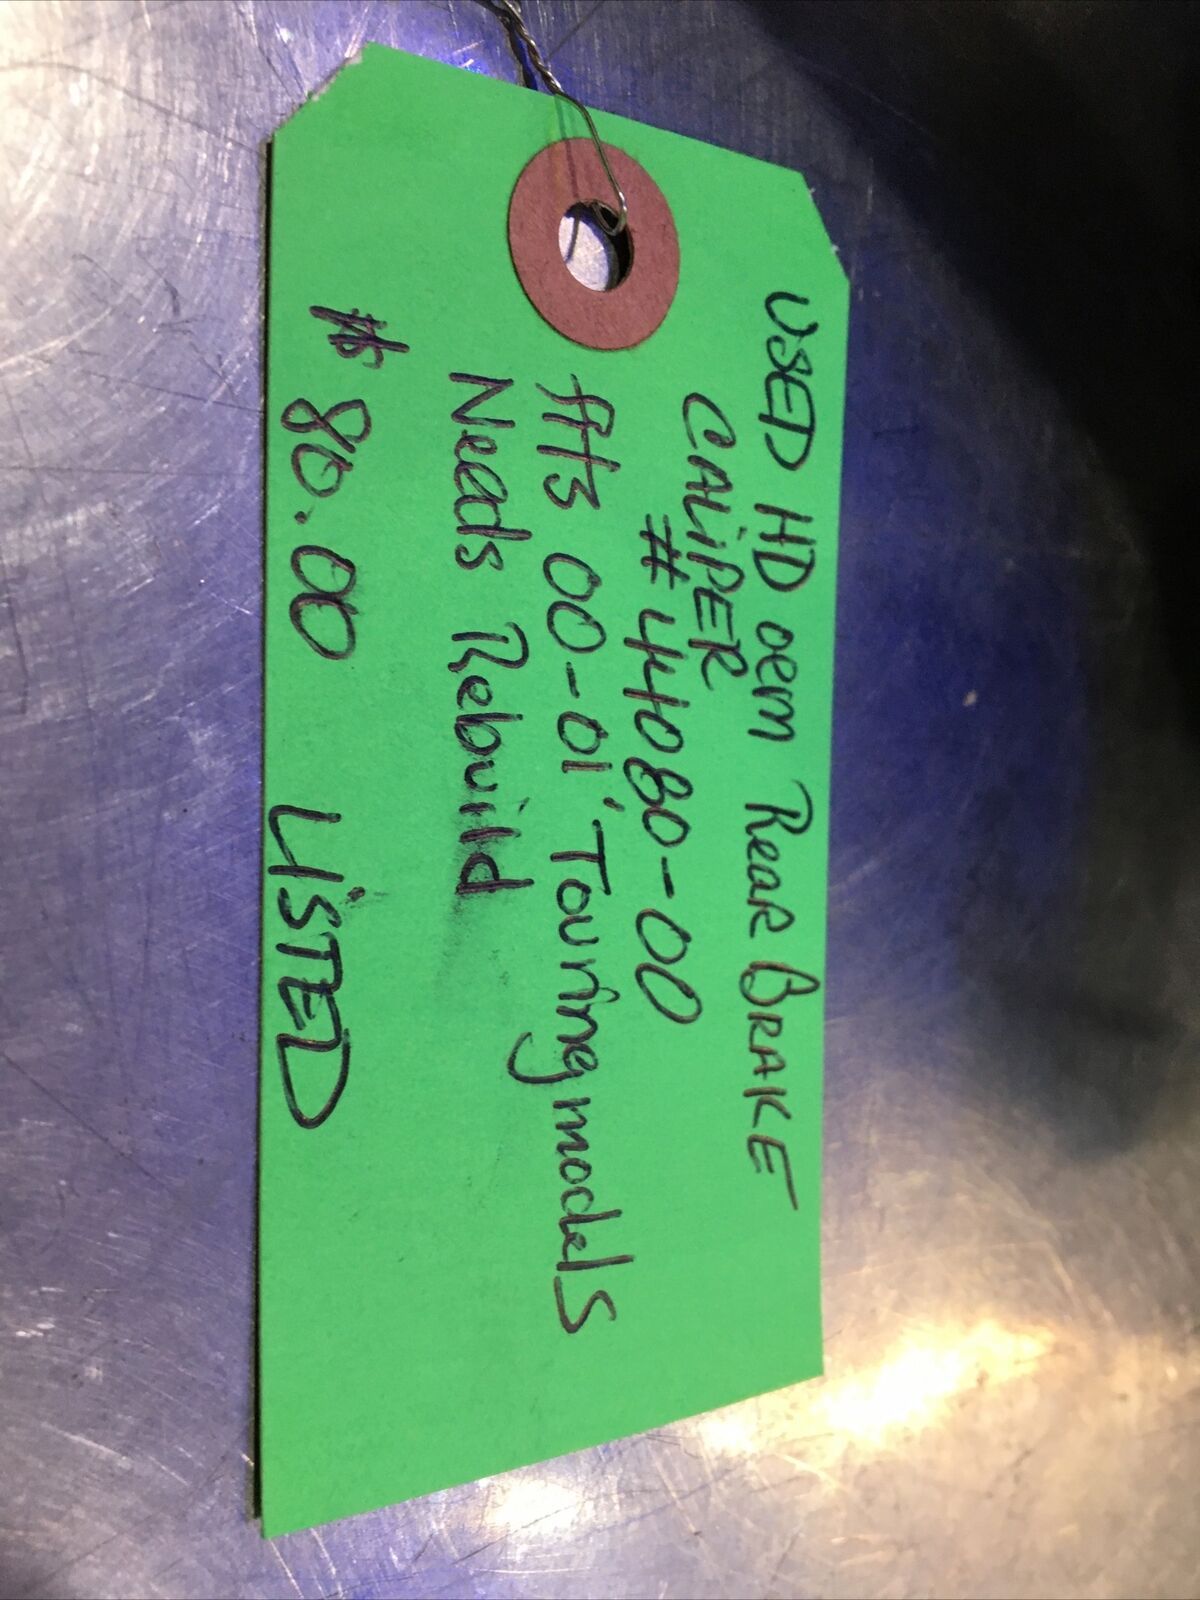 USED HD oem Rear BRAKE
CALiPER
#44080-00
fits 00-01' Touring models
Needs Rebuild
$80.00 LiSTED